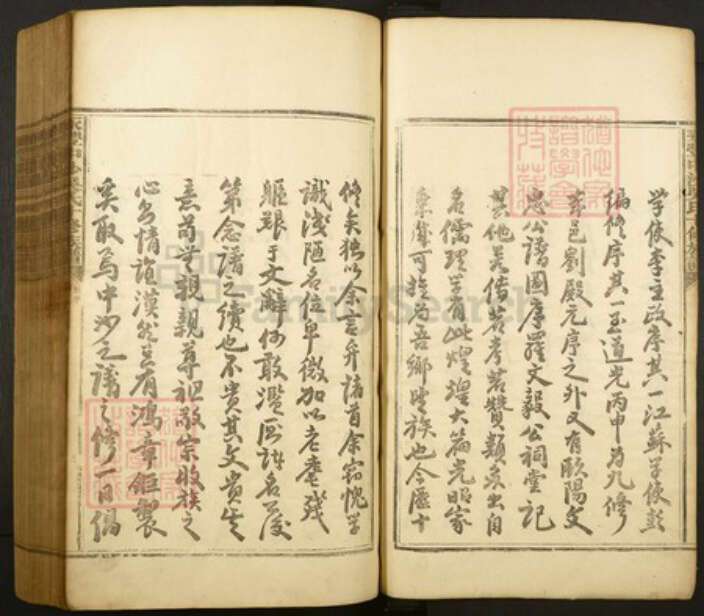 學使李主政序其一江蘇學使彭
編修序其一至道光丙申為九修
本邑劉殿元序之外又有歐陽文
忠公譜圖序羅文毅公祠堂記
其他若傳若考若贊類多出自
名儒理學有此煌煌大篇光昭家
乘洵可推為吾鄉望族也今屆十
修矣獨以余言弁諸首余竊愧學
識淺陋名位卑微加以老耄殘
軀艱于文辭何敢濫厠諸名公後
第念譜之續也不貴其文貴其
意苟其親親尊祖敬宗收族之
心與情誼漠然豈有鴻章鉅製
奚取焉中沙之譜之修一日偶
FamilySearch